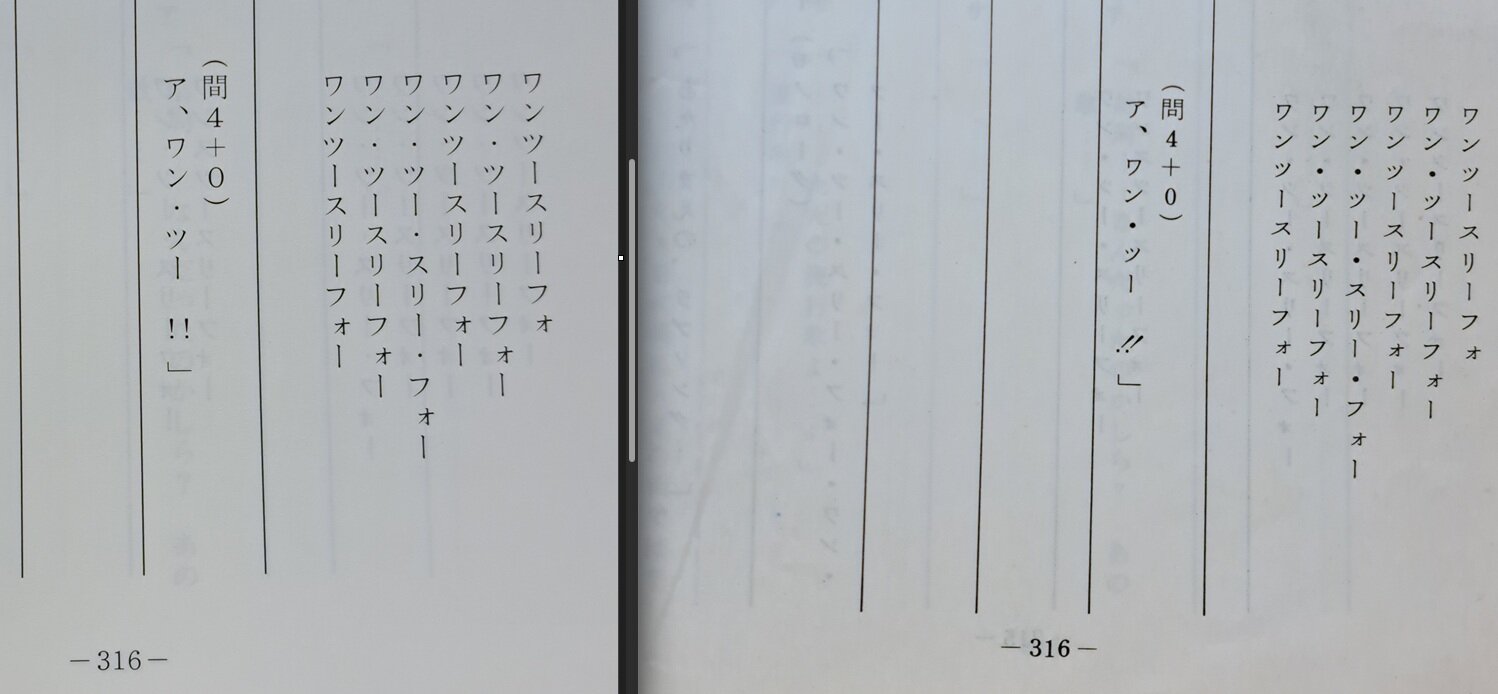 ワンツースリーフォ
ワン・ツースリーフォー
ワンツースリーフォー
ワン・ツー・スリー・フォー
ワン・ツースリーフォー
ワンツースリーフォー
(問4+0)
ア、ワン・ツー !!」
―316―
ワンツースリーフォ
ワン・ツースリーフォー
ワンツースリーフォー
ワン・ツー・スリー・フォー
ワン・ツースリーフォー
ワンツースリーフォー
(問4+0)
ア、ワン・ツー !!」
―316―